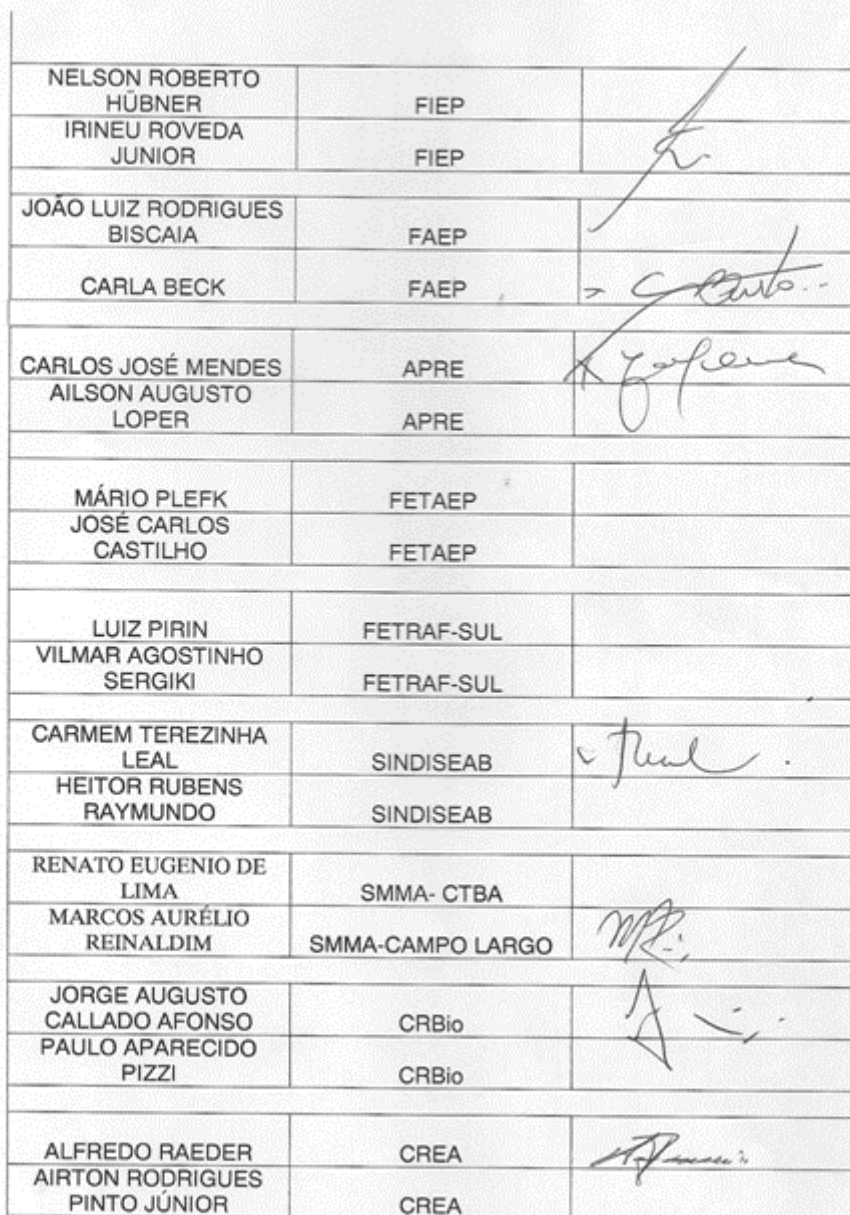 NELSON ROBERTO
HÜBNER FIEP
IRINEU ROVEDA
JUNIOR FIEP
JOÃO LUIZ RODRIGUES
BISCAIA FAEP
CARLA BECK FAEP
CARLOS JOSÉ MENDES APRE
AILSON AUGUSTO
LOPER APRE
MÁRIO PLEFK FETAEP
JOSÉ CARLOS
CASTILHO FETAEP
LUIZ PIRIN FETRAF-SUL
VILMAR AGOSTINHO
SERGIKI FETRAF-SUL
CARMEM TEREZINHA
LEAL SINDISEAB
HEITOR RUBENS
RAYMUNDO SINDISEAB
RENATO EUGENIO DE
LIMA SMMA- CTBA
MARCOS AURÉLIO
REINALDIM SMMA-CAMPO LARGO
JORGE AUGUSTO
CALLADO AFONSO CRBio
PAULO APARECIDO
PIZZI CRBio
ALFREDO RAEDER CREA
AIRTON RODRIGUES
PINTO JÚNIOR CREA